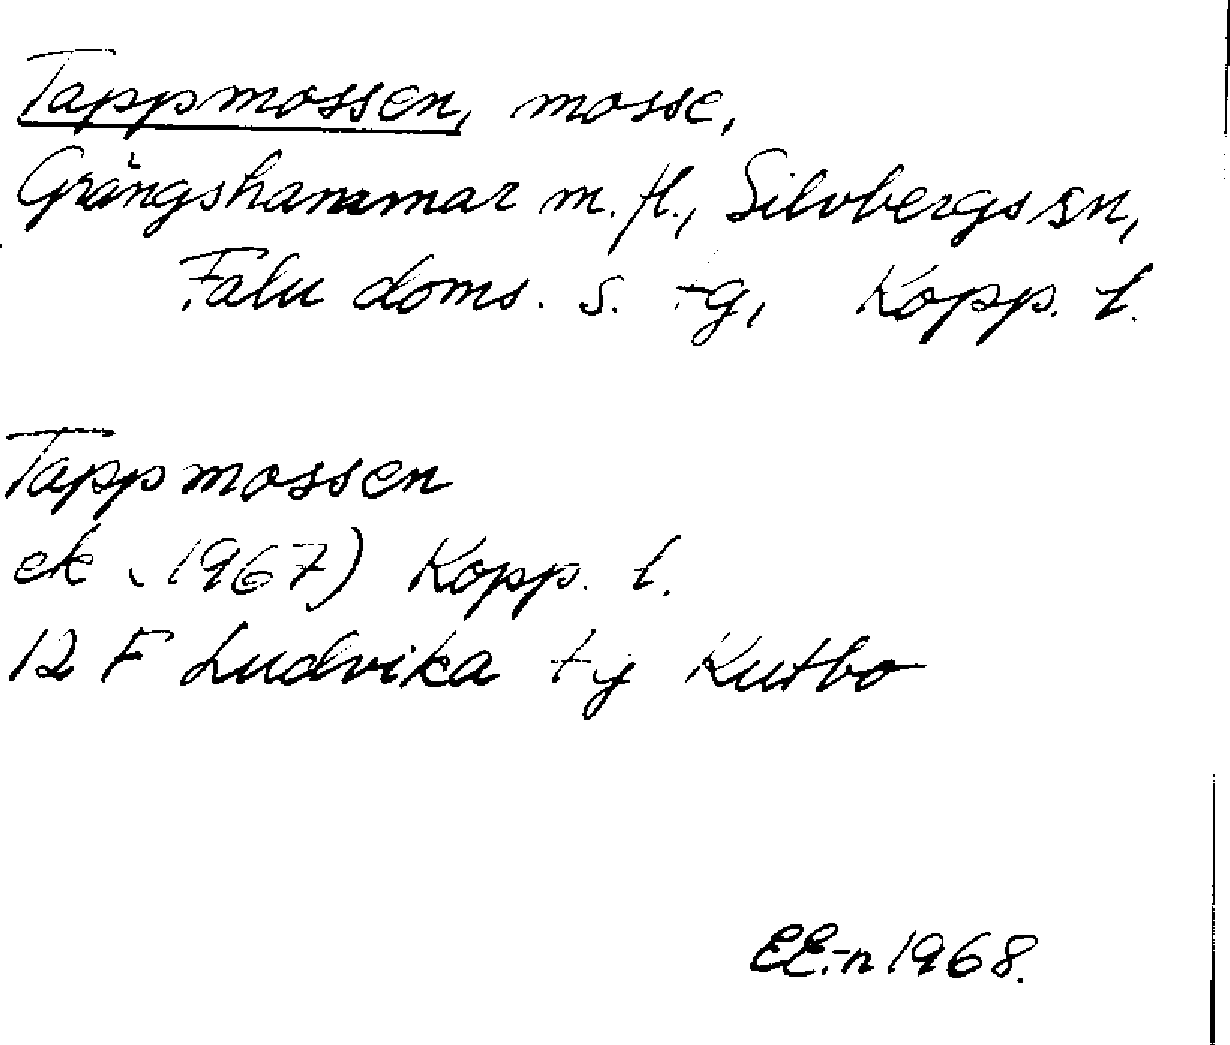 Tappmossen, mosse,
Grängshammar m.fl., Silvbergs sn,
Falu doms. s. tg, Kopp. l.
Tappmossen
ek (1967) Kopp. l.
12 F Ludvika ty Kutbo
EE-n 1968.